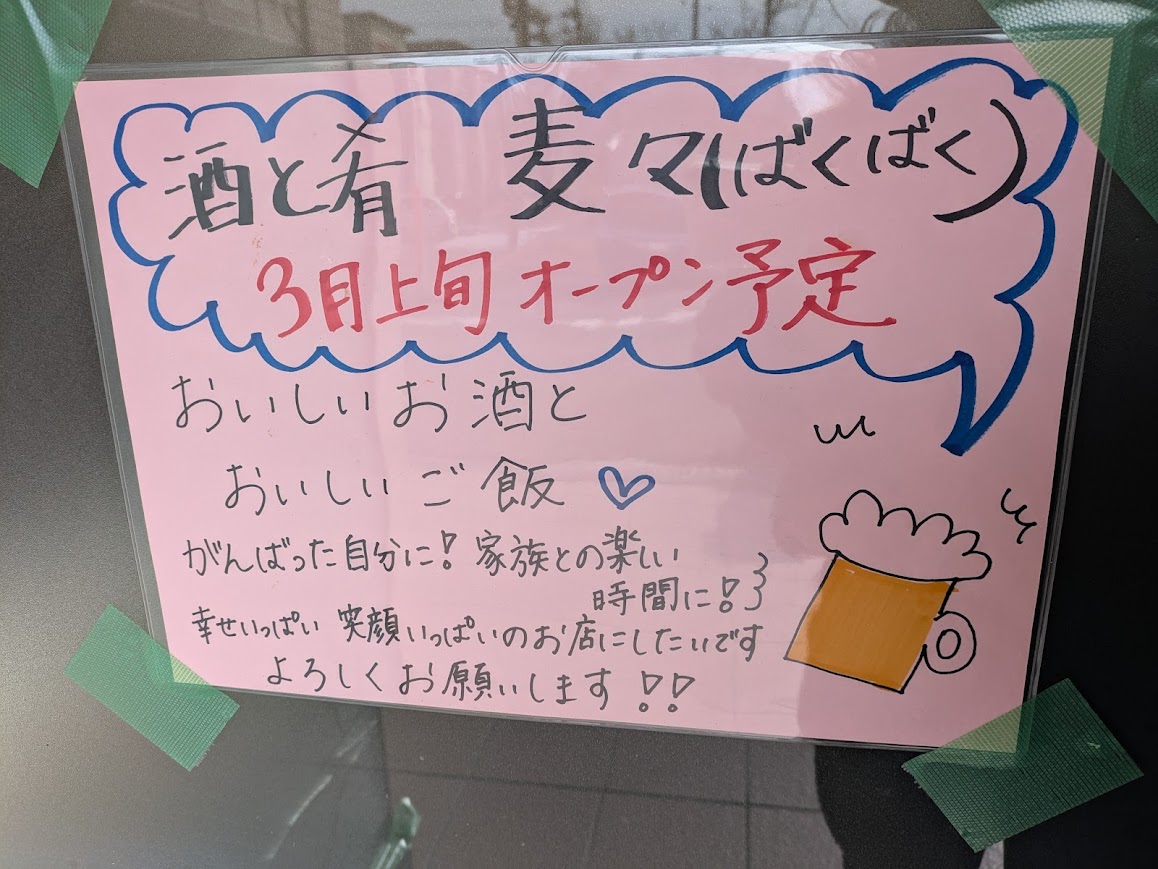 酒と肴 麦々(ばくばく)
3月上旬オープン予定
おいしいお酒と
おいしいご飯♡
がんばった自分に! 家族との楽しい
時間に!
幸せいっぱい 笑顔いっぱいのお店にしたいです
よろしくお願いします!!